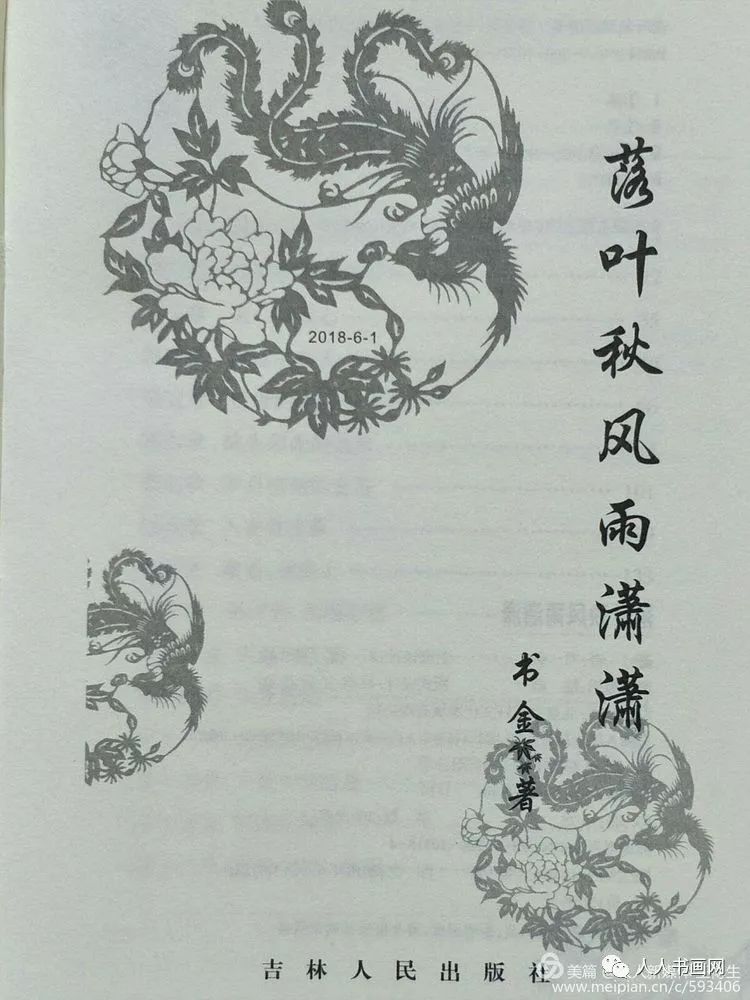 落叶秋风雨潇潇
书金 著
2018-6-1
吉林人民出版社
美篇
人人书画网
www.meipian.cn/c/593406